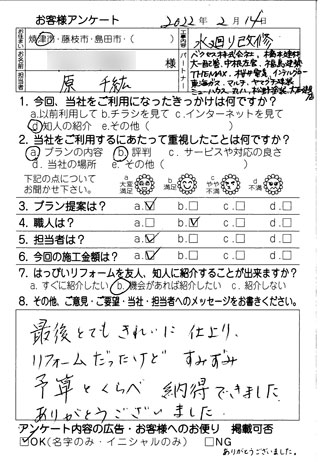 お客様アンケート
2022年 2月 14日
お住まい 焼津市・藤枝市・島田市・( )
工事内容 水廻り改修
お名前 様
担当者 原 千紘
パートナー
THEMAX、
1. 今回、当社をご利用になったきっかけは何ですか?
a.以前利用して b.チラシを見て c.インターネットを見て
d.知人の紹介 e.その他( )
2. 当社をご利用するにあたって重視したことは何ですか?
a. プランの内容 b. 評判 c. サービスや対応の良さ
d. 当社の場所 e. その他( )
下記の点について
お聞かせ下さい。
a 大変満足 b 満足 c やや不満 d 不満
3. プラン提案は? a.☑ b.□ c.□ d.□
4. 職人は? a.□ b.☑ c.□ d.□
5. 担当者は? a.☑ b.□ c.□ d.□
6. 今回の施工金額は? a.☑ b.□ c.□ d.□
7. はっぴいリフォームを友人、知人に紹介することが出来ますか?
a. すぐに紹介したい b.機会があれば紹介したい c. 紹介しない
8. その他、ご意見・ご要望・当社・担当者へのメッセージをお書きください。
最後とてもきれいに 仕上り、
リフォームだったけど すみずみ
予算とくらべ 納得できました。
ありがとうございました。
アンケート内容の広告・お客様へのお便り 掲載可否
☑OK(名字のみ・イニシャルのみ) □NG
ありがとうございました。